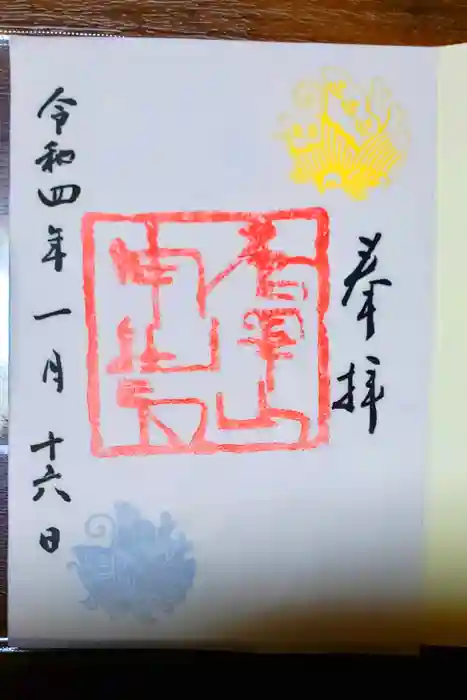 奉拝
令和四年一月十六日